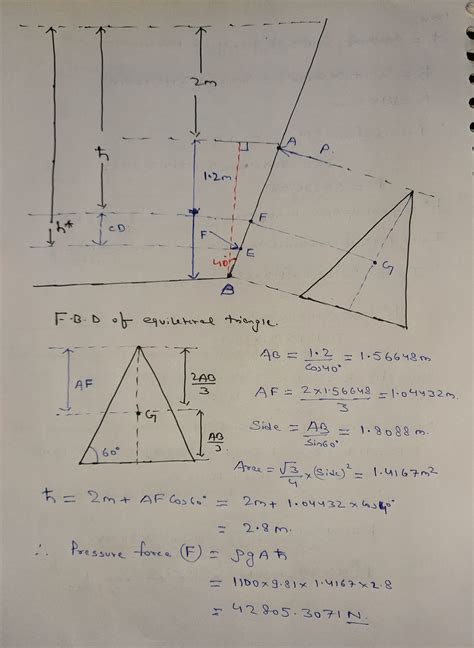 2m
A
P.
ħ
1.2m
ħ*
CD
F
F
E
40°
B
G
F.B.D of equileteral triangle.
AF
2AB/3
G
AB/3
60°
AB = 1.2/cos40° = 1.56648m
AF = 2×1.56648/3 = 1.04432m
Side = AB/sin60° = 1.8088m.
Area = √3/4 × (side)² = 1.4167m²
ħ = 2m + AF Cos60° = 2m + 1.04432 × cos40°
= 2.8m.
∴ Pressure force (F) = ρgAħ
= 1100×9.81×1.4167×2.8
= 42805.3071 N.